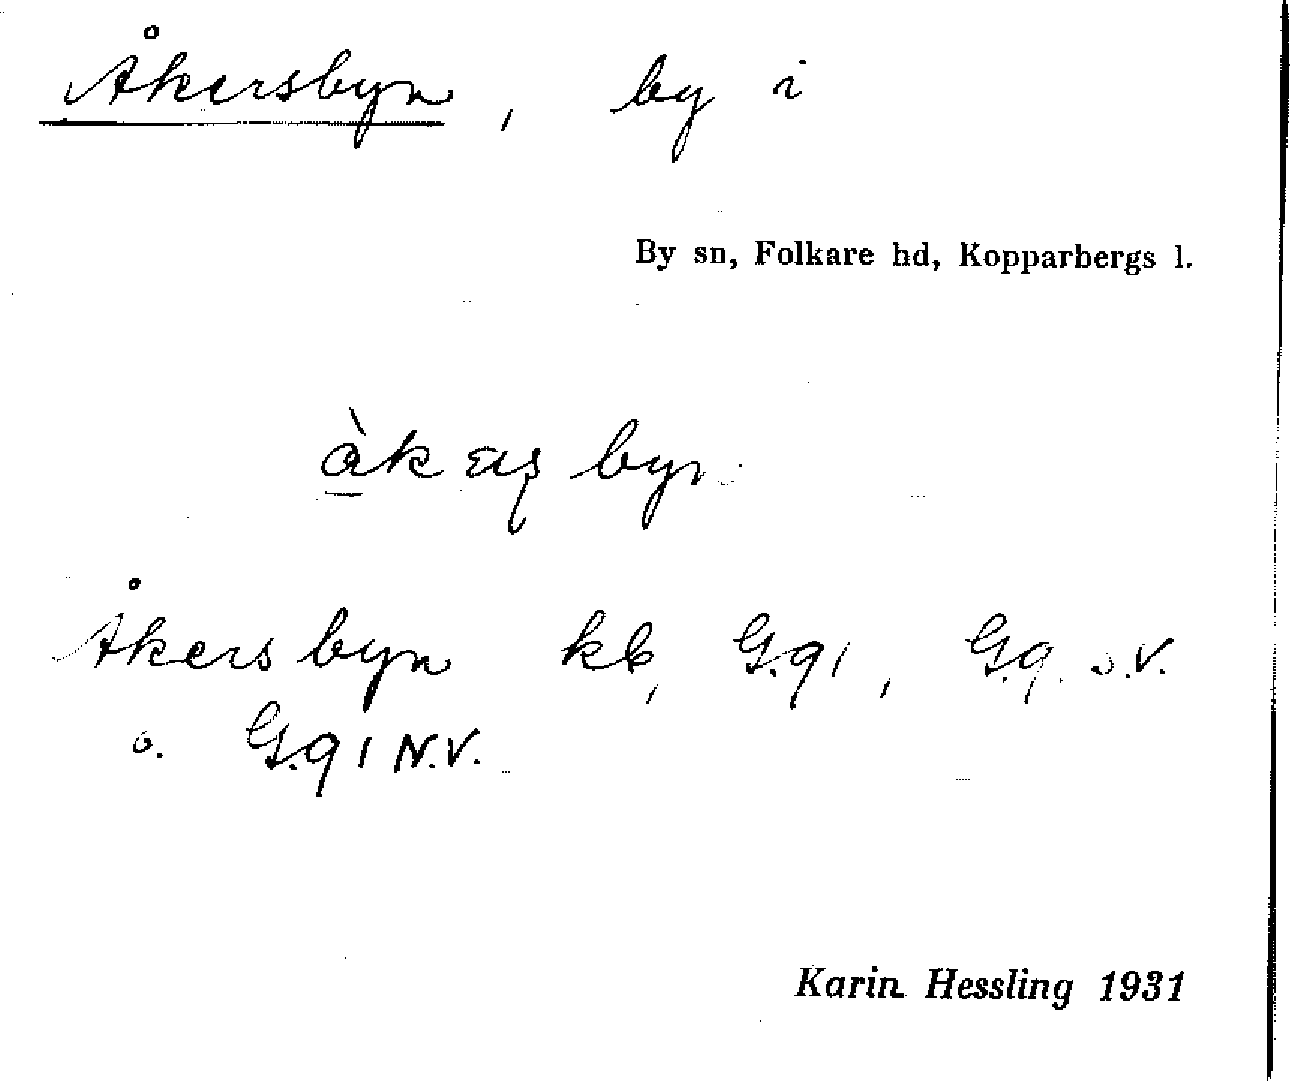 Åkersbyn, by i
By sn, Folkare hd, Kopparbergs l.
Åkersbyn kb, G.91, G.9. ö.V.
o. G.91 N.V.
Karin Hessling 1931